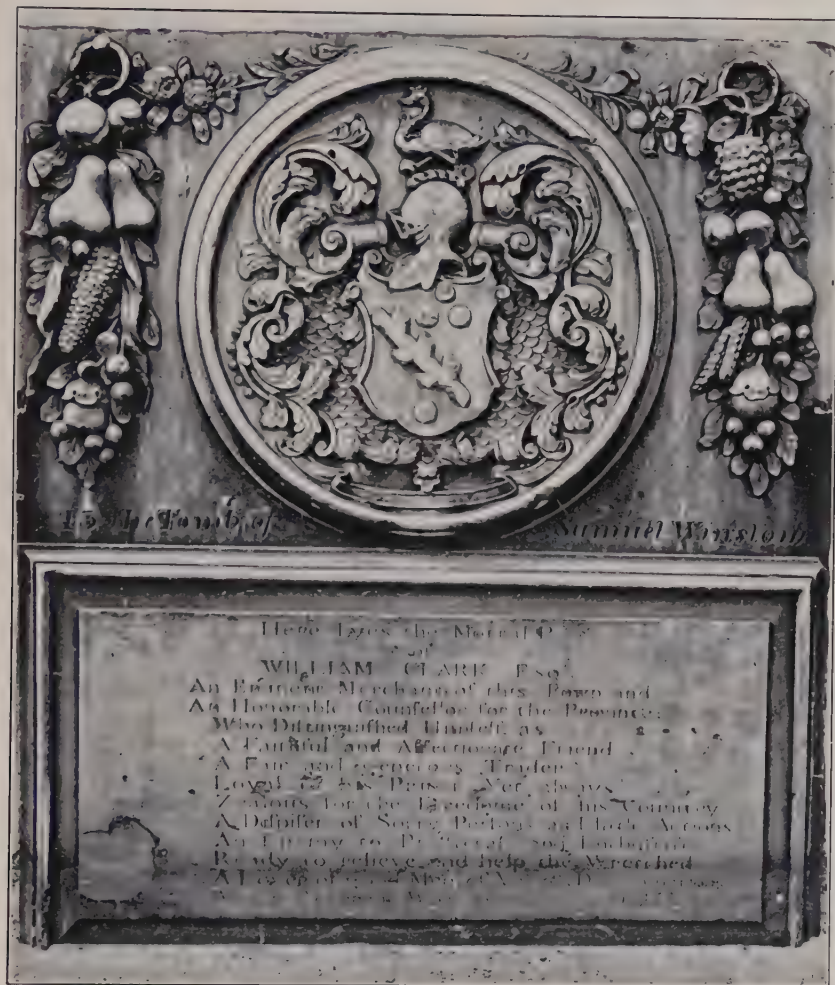 The Tomb of Samuel Winslow
Here lyes the Mortal
of
WILLIAM CLARK Esqr
An Eminent Merchant of this Town and
An Honorable Counsellor for the Province:
Who Distinguished Himself as
A Faithful and Affectionate Friend
A Fair and generous Trader
Loyal to his Prince Yet always
Zealous for the Freedome of his Countrey
A Despiser of Sorry Persons and little Actions
An Enemy to and
Ready to relieve and help the Wretched
A Lover of